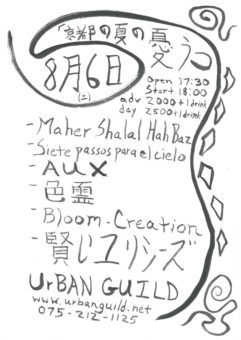 「京都の夏の憂う」
8月6日
(土)
open 17:30
Start 18:00
adv 2000+1drink
day 2500+1drink
-Maher Shalal Hah Baz
-Siete passos para el cielo
-AUX
-色霊
-Bloom-Creation
-賢いユリシーズ
UrBAN GUILD
www.urbanguild.net
075-212-1125